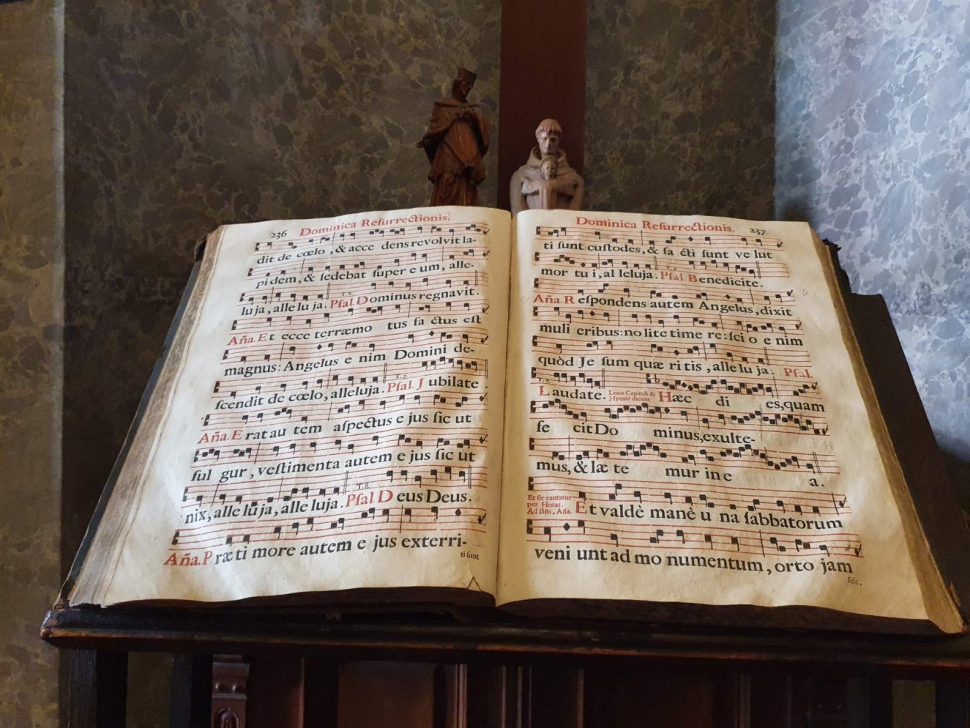 236 Dominica Reſurrectionis.
dit de cœlo, & acce dens revolvit la-
pidem, & ſedebat ſuper e um, alle-
lu ja, alle lu ja. Pſal. Dominus regnavit.
Aña. Et ecce terræmo tus fa ctus eſt
magnus: Angelus e nim Domini de-
ſcendit de cœlo, alleluja. Pſal. J ubilate
Aña. E rat au tem aſpectus e jus ſic ut
ful gur, veſtimenta autem e jus ſic ut
nix, alle lu ja, alle lu ja. Pſal D eus Deus.
Aña. P ræ ti more autem e jus exterri-
ti ſunt
Dominica Reſurrectionis. 237
ti ſunt cuſtodes, & fa cti ſunt ve lut
mor tu i, al leluja. Pſal Benedicite.
Aña. R eſpondens autem Angelus, dixit
muli eribus: no lite time re: ſci o e nim
quòd Je ſum quæ ri tis, alle lu ja. Pſal.
Laudate. Loco Capituli & Hymni dicitur Hæc di es, quam
fe cit Do minus, exulte-
mus, & læ te mur in e a.
Et ſic cantatur
per Horas.
Ad Bñs, Aña. Et valdè manè u na ſabbatorum
veni unt ad mo numentum, orto jam
ſole.